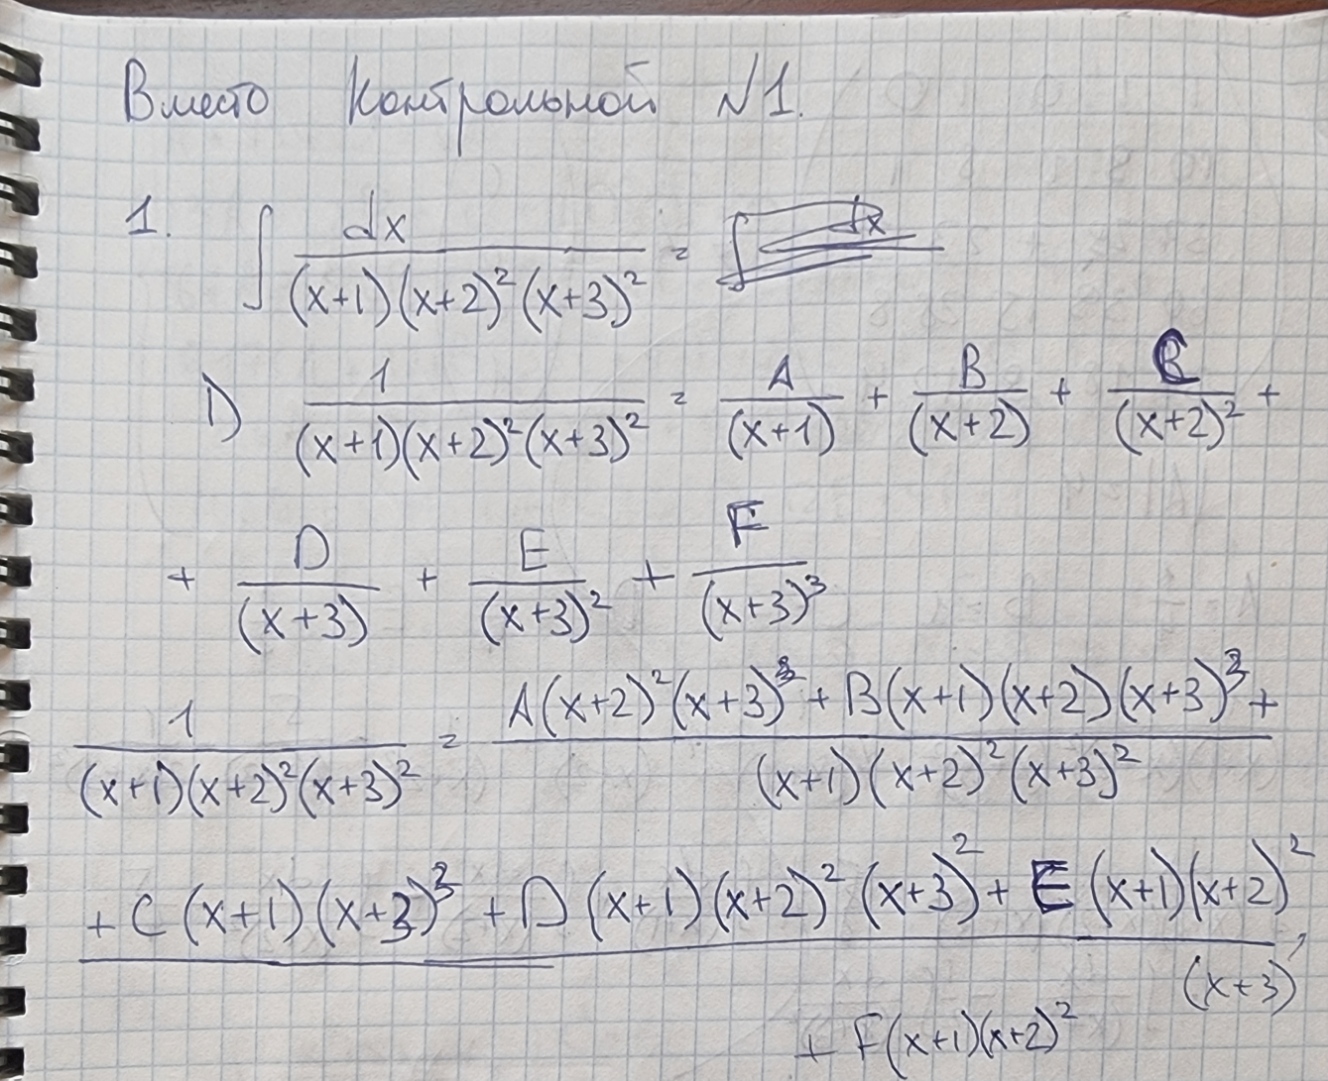 Вместо Контрольной №1.
1. ∫ dx / (x+1)(x+2)²(x+3)² = ∫ dx
1) 1 / (x+1)(x+2)²(x+3)² = A / (x+1) + B / (x+2) + C / (x+2)² +
+ D / (x+3) + E / (x+3)² + F / (x+3)³
1 / (x+1)(x+2)²(x+3)² = A(x+2)²(x+3)³ + B(x+1)(x+2)(x+3)³ + / (x+1)(x+2)²(x+3)²
+ C(x+1)(x+3)³ + D(x+1)(x+2)²(x+3)² + E(x+1)(x+2)²
(x+3)
+ F(x+1)(x+2)²